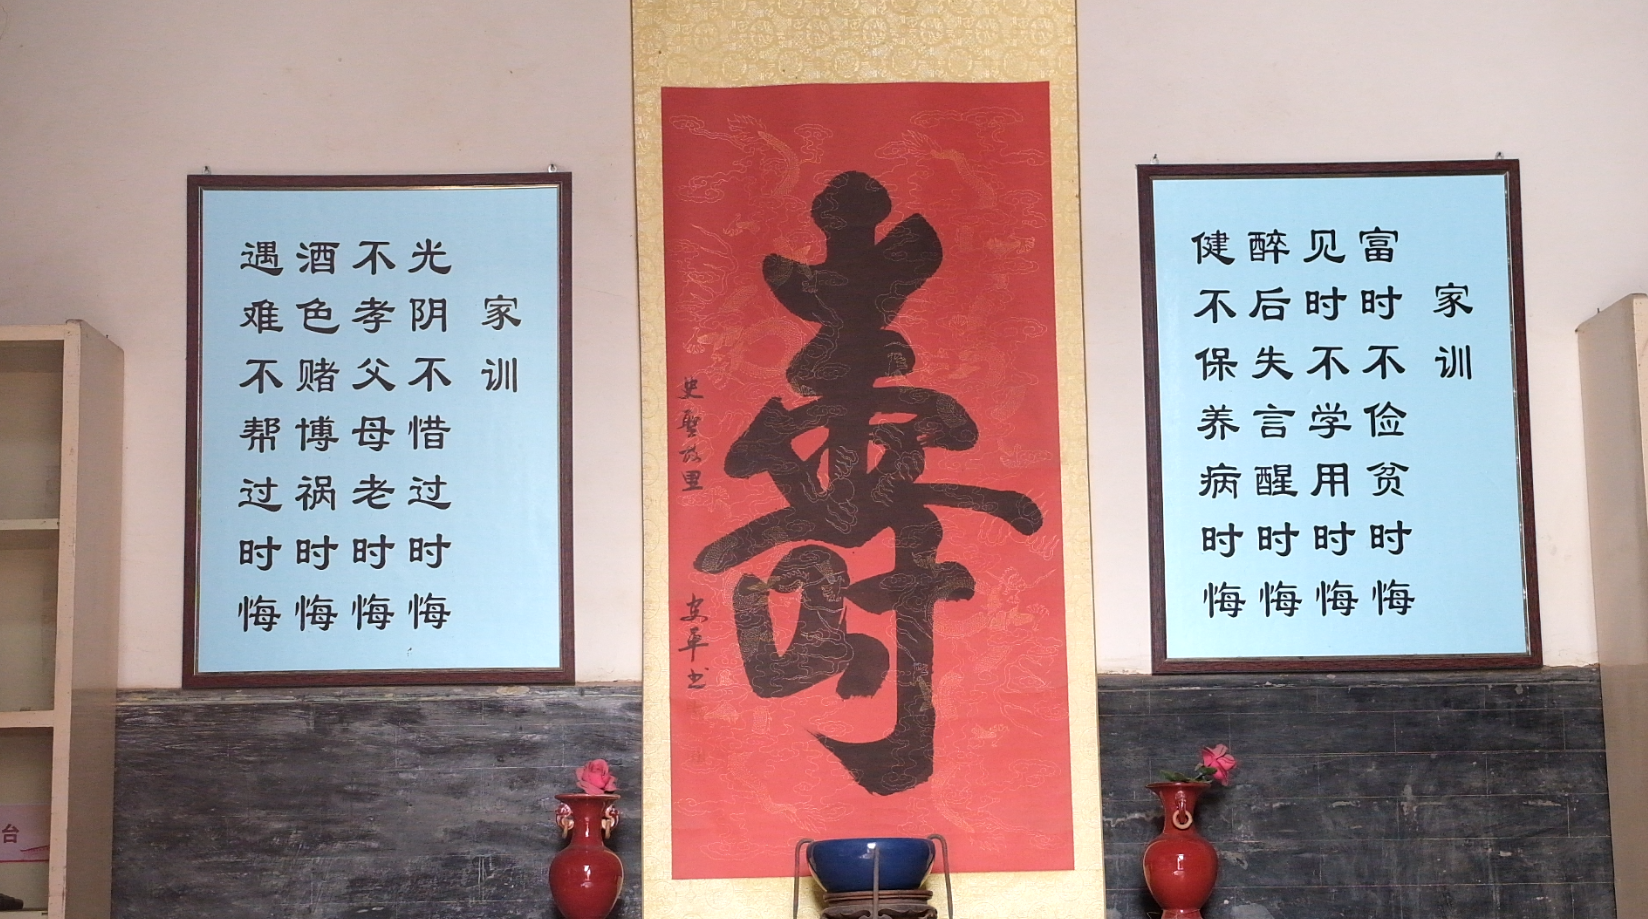 家训
富时不俭贫时悔
见时不学用时悔
醉后失言醒时悔
健不保养病时悔
寿
史圣故里
安平书
家训
光阴不惜过时悔
不孝父母老时悔
酒色赌博祸时悔
遇难不帮过时悔
台